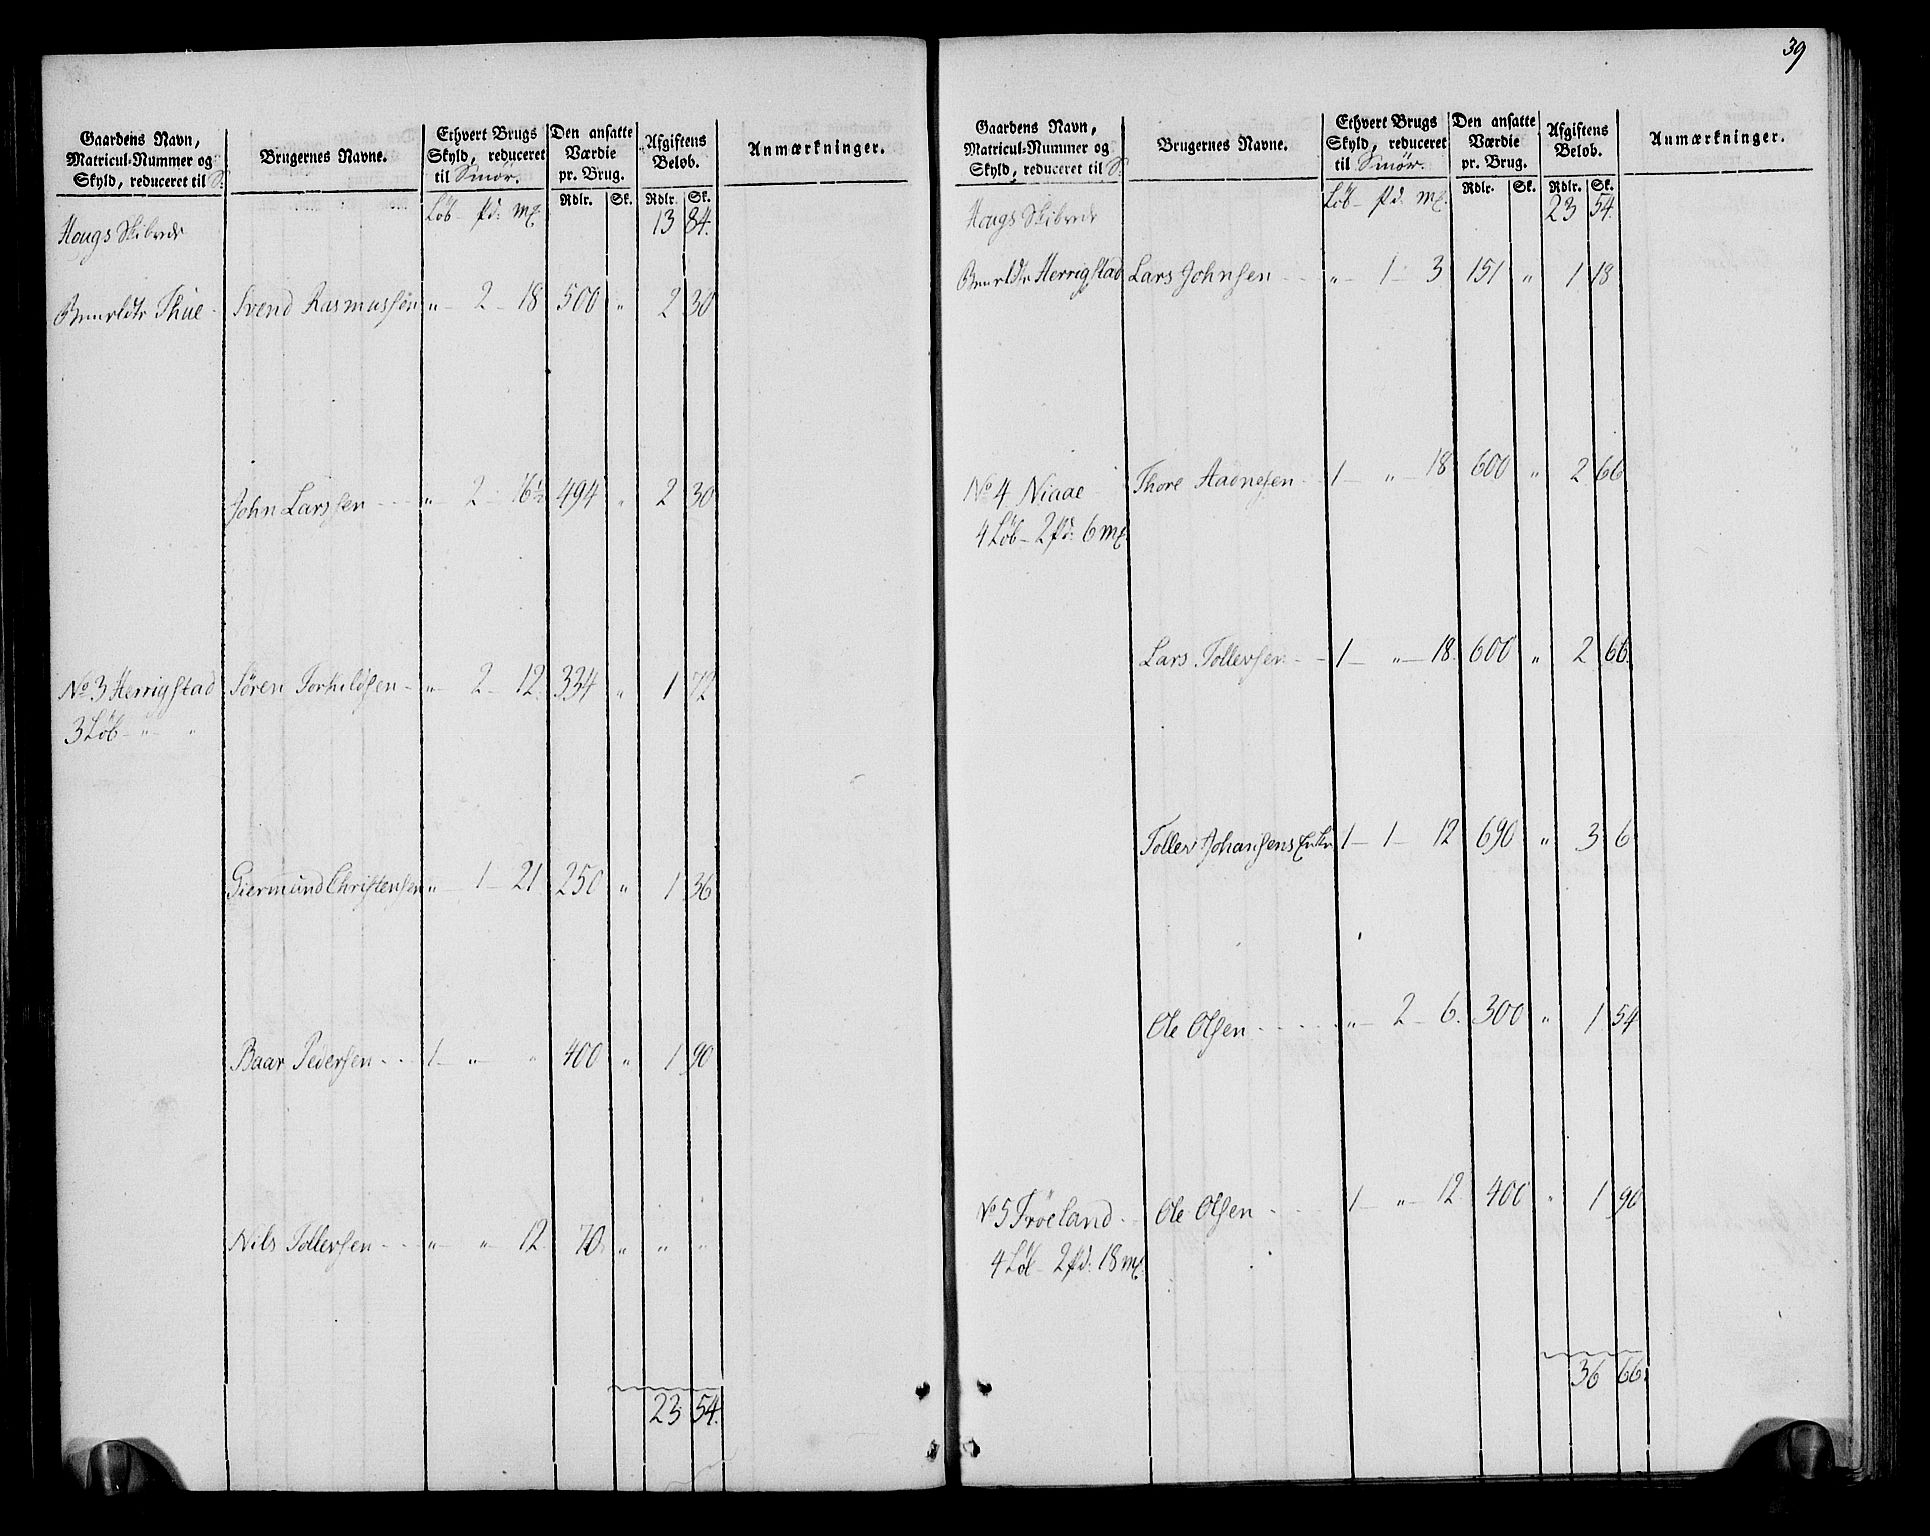 39
Gaardens Navn, Matricul-Nummer og Skyld, reduceret til S. | Brugernes Navne. | Ethvert Brugs Skyld, reduceret til Smør. | Den ansatte Værdie pr. Brug. | Afgiftens Beløb. | Anmærkninger.
Løb - pd: mk. | Rdlr. | Sk. | Rdlr. | Sk.
Hougs Skibrede 13 84.
Thue Svend Rasmussen „ - 2 - 18 500 „ 2 30
John Larssen „ - 2 - 16½ 494 „ 2 30
No 3 Herrigstad Sören Torkildsen „ - 2 - 12. 334 „ 1 72
3 Løb - „ - „
Giermund Christensen „ - 1 - 21 250 „ 1 36
Baar Pedersen 1 - „ - „ 400 „ 1 90
Nils Tollevsen „ - „ - 12 70 „ „ „
23 54.
Gaardens Navn, Matricul-Nummer og Skyld, reduceret til S. | Brugernes Navne. | Ethvert Brugs Skyld, reduceret til Smør. | Den ansatte Værdie pr. Brug. | Afgiftens Beløb. | Anmærkninger.
Løb - pd: mk. | Rdlr. | Sk. | Rdlr. | Sk.
Hougs Skibrede 23 54.
Herrigstad Lars Johnsen „ - 1 - 3 151 „ 1 18
No 4 Niaae Thore Aadnesen 1 - „ - 18 600 „ 2 66
4 Løb - 2 pd: 6 mk.
Lars Tollevsen 1 - „ - 18. 600 „ 2 66.
Tollev Johansens Enke 1 - 1 - 12 690 „ 3 6
Ole Olsen „ - 2 - 6. 300 „ 1 54
No 5 Tröeland Ole Olsen 1 - „ - 12. 400 „ 1 90
4 Løb - 2 pd: 18 mk.
36 66.